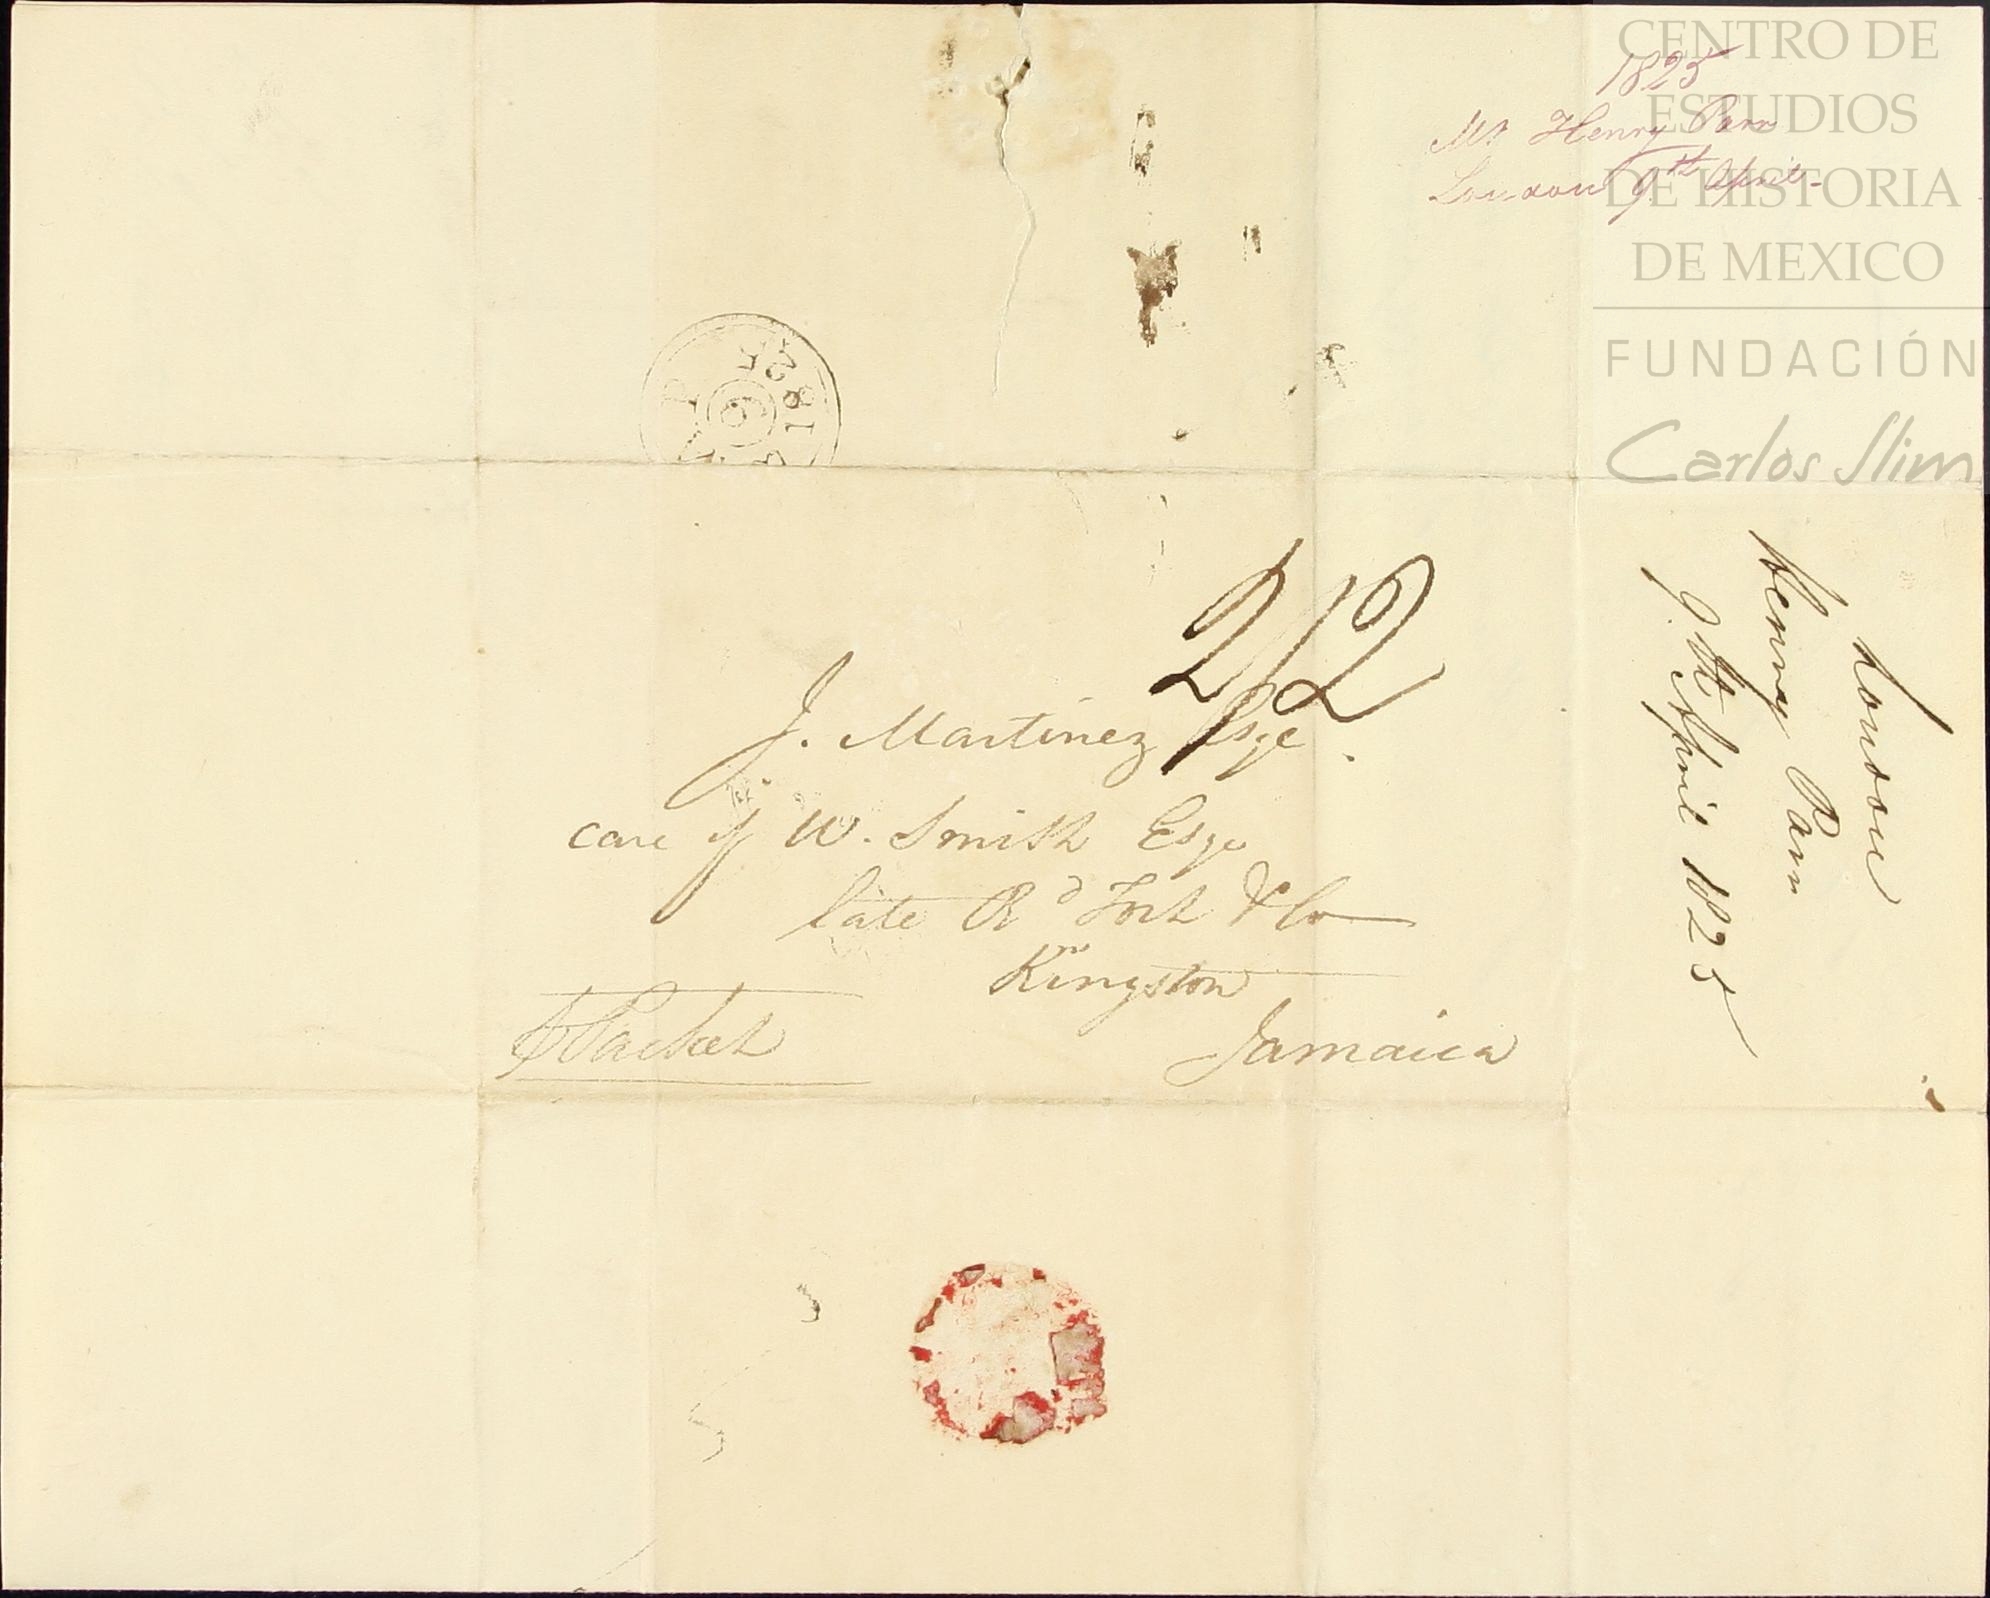 CENTRO DE
ESTUDIOS
DE HISTORIA
DE MEXICO
FUNDACIÓN
Carlos Slim
1825
Mr Henry Parr
London 9th April
1825
2/2
J. Martinez Esqe.
care of W. Smith Esqe
late Rd & Co
Kingston
Jamaica
Packet
London
Henry Parr
9th April 1825